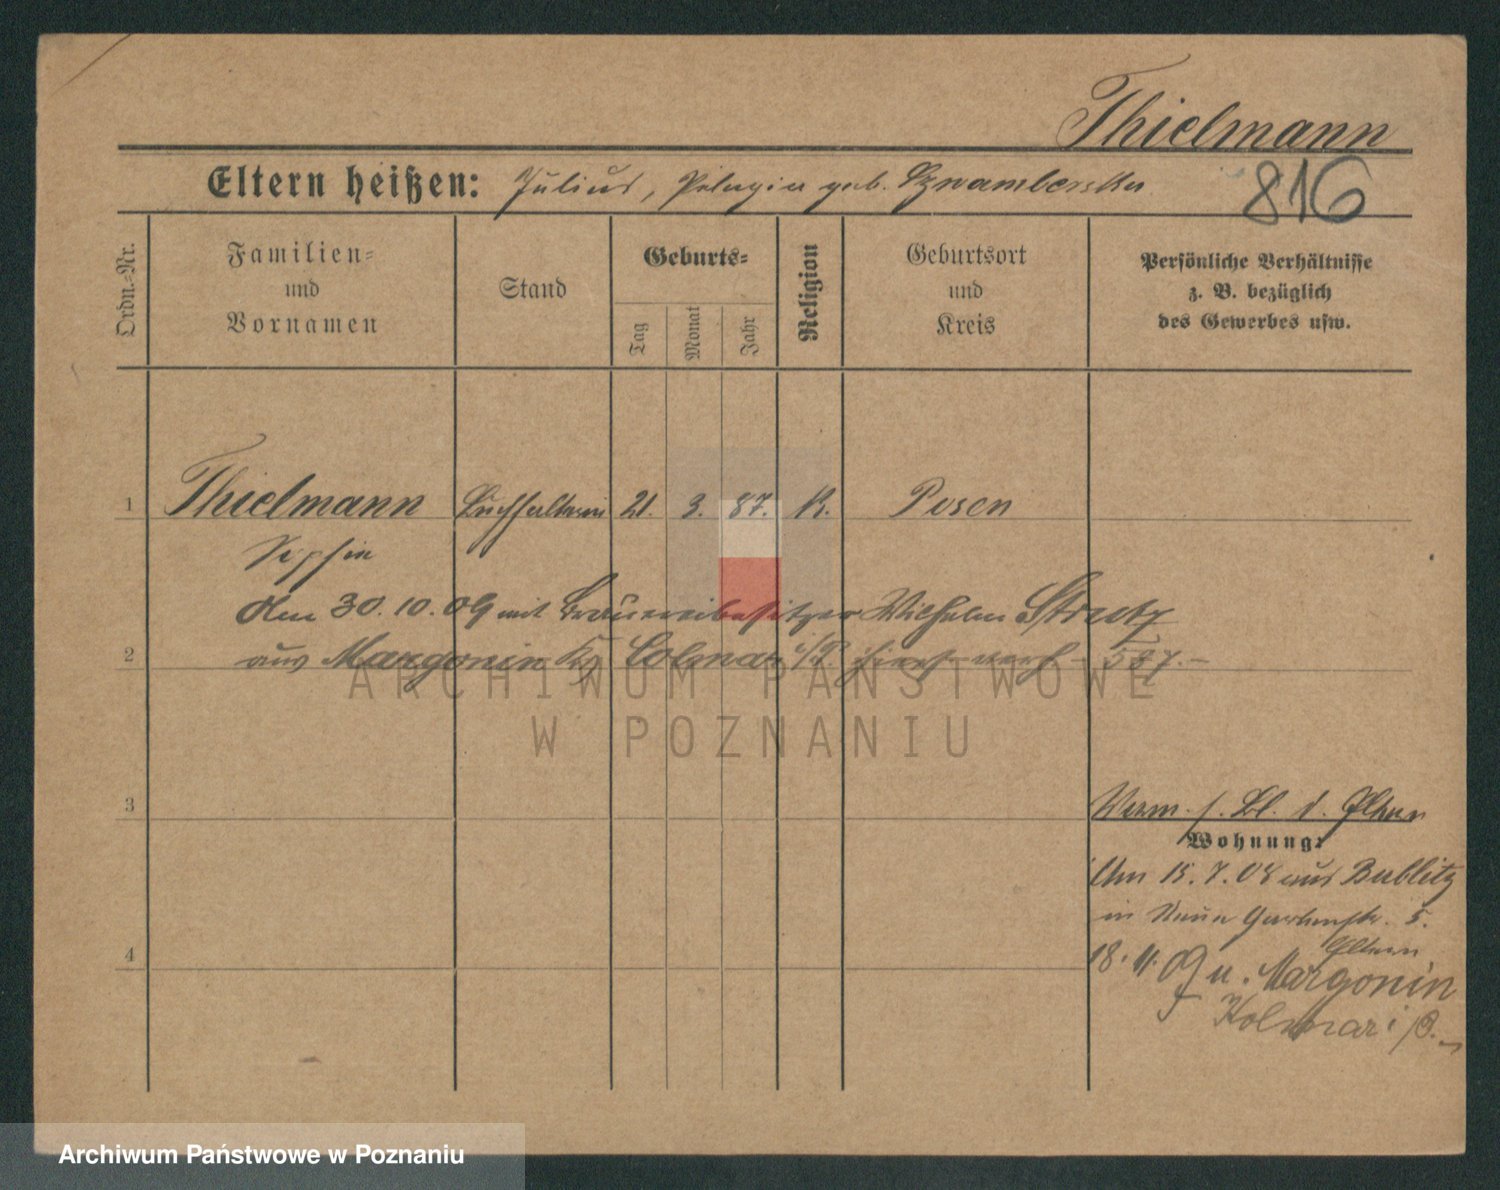 Thielmann
Eltern heißen: Julius, Pelagia geb. Szwamberska
816
Ordn.-Nr.
Familien-
und
Vornamen
Stand
Geburts-
Tag
Monat
Jahr
Religion
Geburtsort
und
Kreis
Persönliche Verhältnisse
z. B. bezüglich
des Gewerbes usw.
1 Thielmann Buchhalterin 21. 3. 87. K. Posen
Sophie
den 30.10.09 mit Brauereibesitzer Wilhelm
2 aus Margonin Colmar i/P. hier verh. 587.
ARCHIWUM PAŃSTWOWE
W POZNANIU
3
Verm. s. Bl. d. Eltern
Wohnung:
Am 15.7.08 aus Bublitz
in Neue Gartenstr. 5.
Eltern
4
18. 11. 09 n. Margonin
Kolmar i/P.
Archiwum Państwowe w Poznaniu